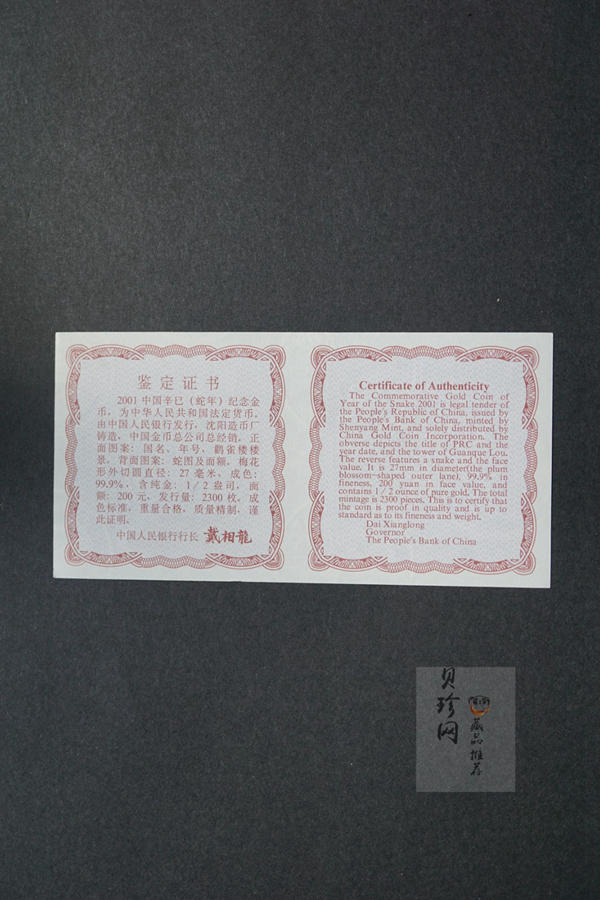 鉴定证书
2001中国辛巳（蛇年）纪念金
币，为中华人民共和国法定货币。
由中国人民银行发行，沈阳造币厂
铸造，中国金币总公司总经销，正
面图案：国名、年号、鹳雀楼楼
景，背面图案：蛇图及面额，梅花
形外切圆直径：27毫米，成色：
99.9%，含纯金：1／2盎司，面
额：200元，发行量：2300枚，成
色标准，重量合格，质量精制，谨
此证明。
中国人民银行行长 戴相龍
Certificate of Authenticity
The Commemorative Gold Coin of
Year of the Snake 2001 is legal tender of
the People's Republic of China, issued by
the People's Bank of China, minted by
Shenyang Mint, and solely distributed by
China Gold Coin Incorporation. The
obverse depicts the title of PRC and the
year date, and the tower of Guanque Lou.
The reverse features a snake and the face
value. It is 27mm in diameter(the plum
blossom-shaped outer lane), 99.9% in
fineness, 200 yuan in face value, and
contains 1／2 ounce of pure gold. The total
mintage is 2300 pieces. This is to certify that
the coin is proof in quality and is up to
standard as to its fineness and weight.
Dai Xianglong
Governor
The People's Bank of China
贝珍网
藏品推荐